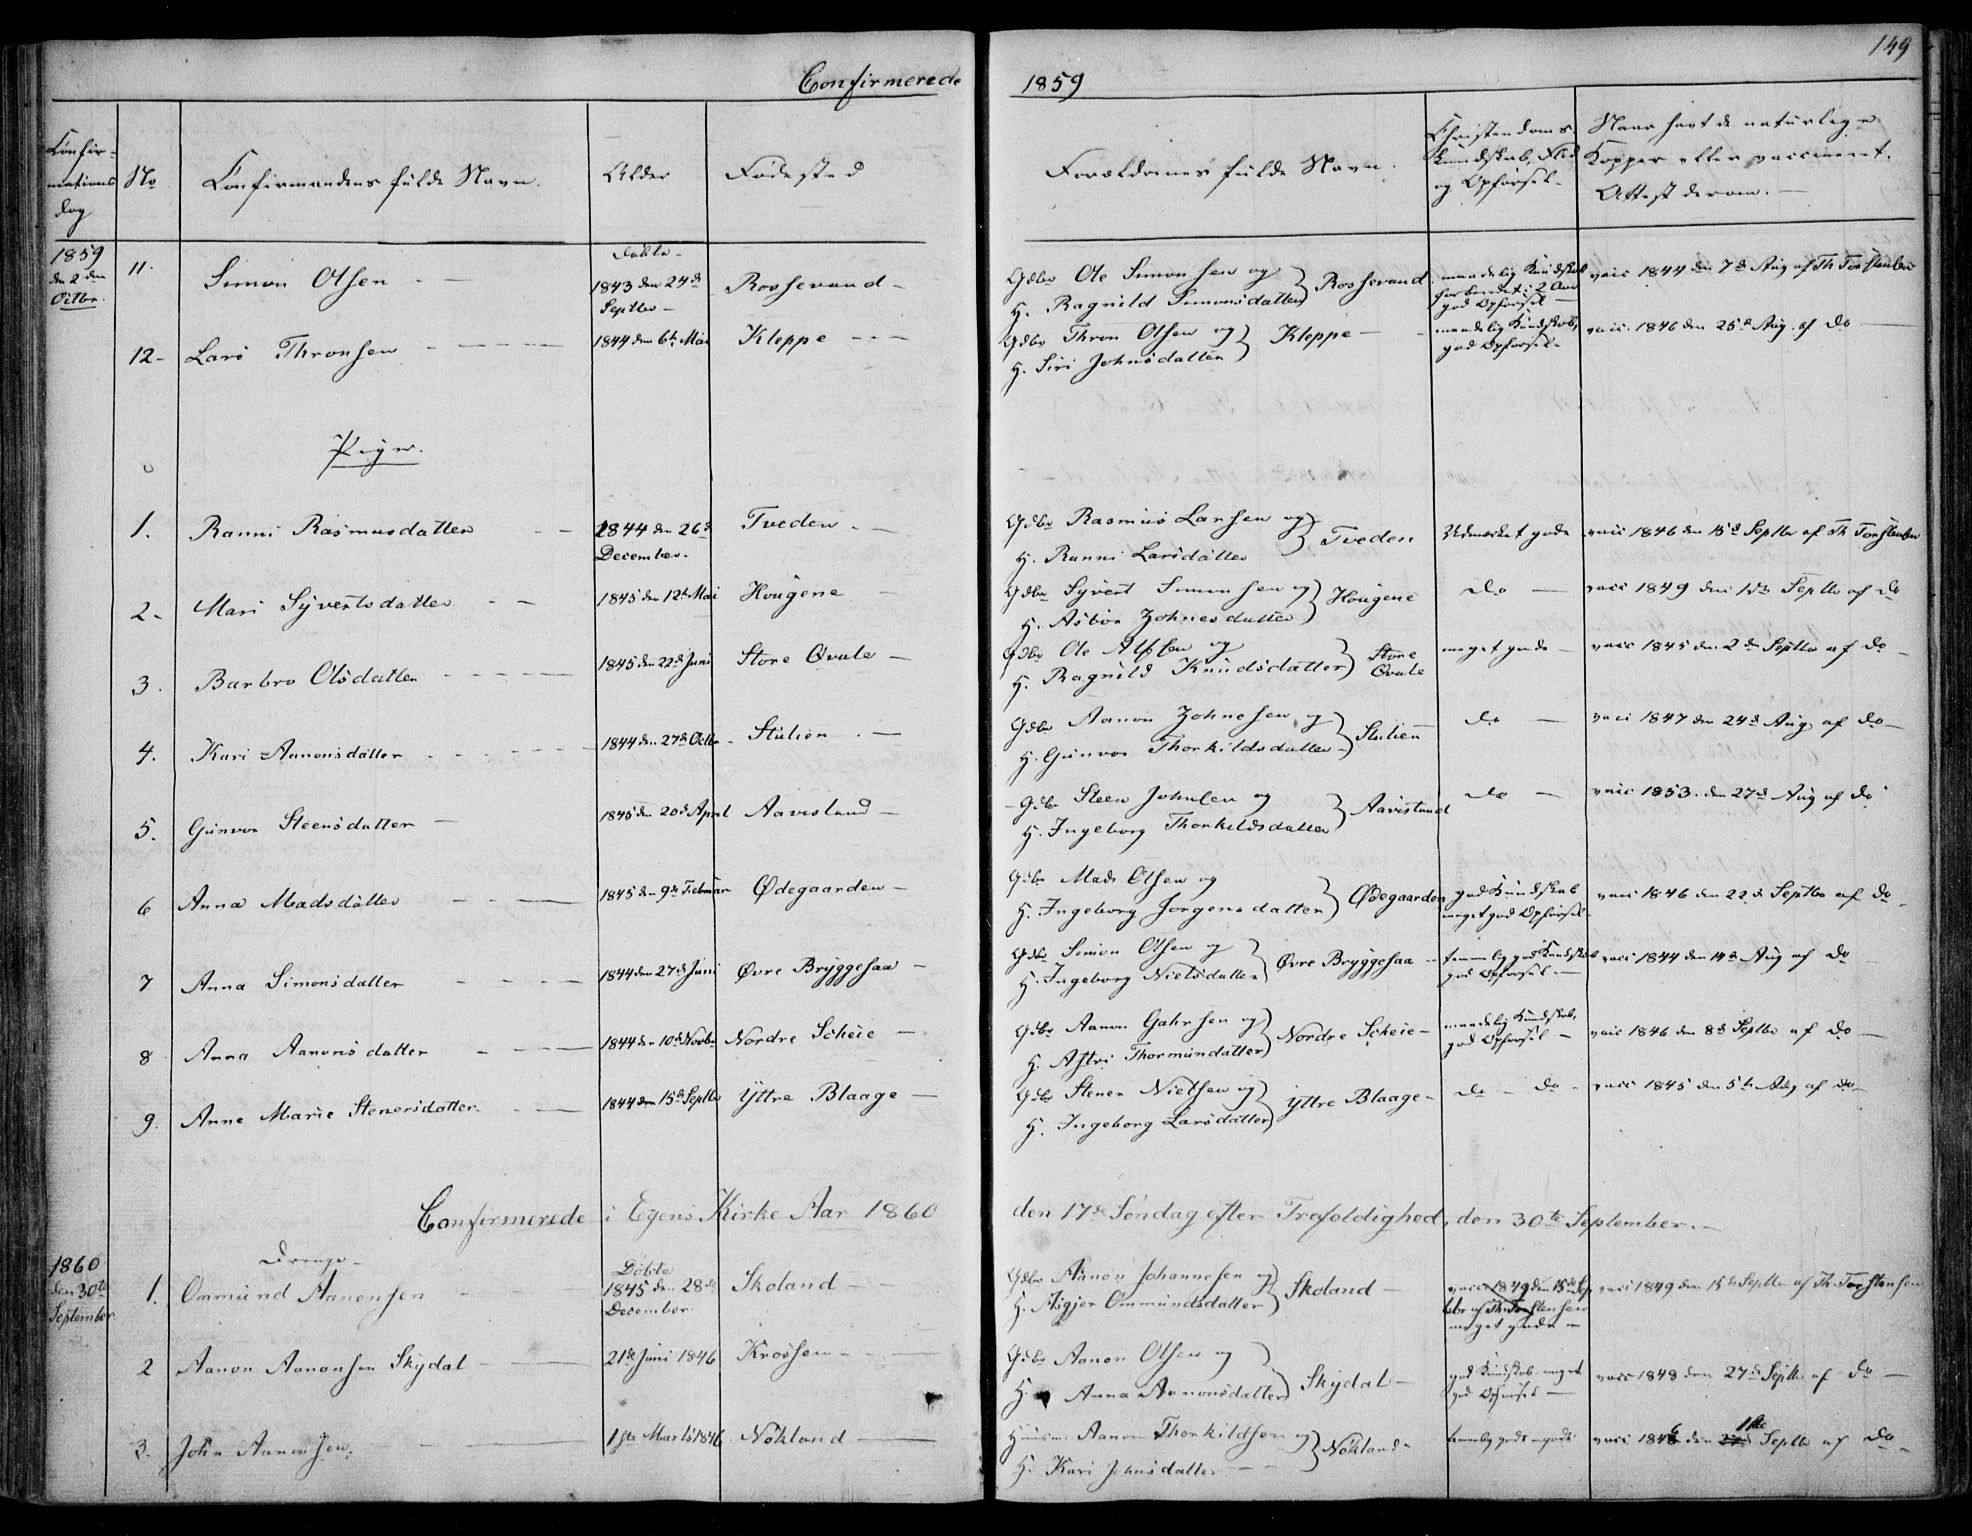 149
Confirmerede 1859
Confir-
mations
dag
No
Confirmandens fulde Navn.
Alder
Fødested
Forældrenes fulde Navn.
Christendoms
Kundskab, Flid
og Opførsel.
Naar havt de naturlige
Kopper eller vaccineret.
Attest derom.
1859
den 2den
Octbr.
11. Simon Olsen
Døbte
1843 den 24de
Septbr
Rossevand
Gdbr Ole Simonsen og
H. Ragnild Simonsdatter } Rossevand
maadelig Kundskab
god Opførsel
vacc 1844 den 7de Aug af Th Torstensen
12 Lars Thronsen
1844 den 6te Mai
Kleppe
Gdbr Thron Olsen og
H. Siri Johnsdatter } Kleppe
maadelig Kundskab,
god Opførsel
vacc. 1846 den 25de Aug. af do
Piger.
1. Ranni Rasmusdatter
1844 den 26de
December.
Tveden
Gdbr Rasmus Larsen og
H. Ranni Larsdatter } Tveden
Udmærket gode
vacc 1846 den 15de Septbr af Th Torstensen
2. Mari Syvertsdatter
1845 den 12te Mai
Hougene
Gdbr Syvert Simonsen og
H. Asbor Johnesdatter } Hougene
do
vacc 1849 den Septbr af do
3. Barbro Olsdatter
1845 den 22de Juni
Store Qvale
Gdbr Ole Alfsen og
H. Ragnild Knudsdatter } Store
Qvale
meget gode
vacc 1845 den 2den Septbr af do
4. Kari Aanonsdatter
1844 den 27de Octbr
Stulien
Gdbr Aanon Johnesen og
H. Gunvor Thorkildsdatter } Stulien
do
vacc 1847 den 24de Aug af do
5. Gunvor Steensdatter
1845 den 20de April
Aavesland
Gdbr Steen Johnsen og
H. Ingeborg Thorkildsdatter } Aavesland
do
vacc 1853. den 27de Aug af do
6 Anna Madsdatter
1845 den 9de Februar
Ødegaarden
Gdbr Mads Olsen og
H. Ingeborg Jorgensdatter } Ødegaarden
god Kundskab
meget god Opførsel
vacc 1846 den 22de Septbr af do
7 Anna Simonsdatter
1844 den 27de Juni
Øvre Bryggesaa
Gdbr Simon Olsen og
H. Ingeborg Nielsdatter } Øvre Bryggesaa
temmelig god Kundskab
god Opførsel
vacc 1844 den 14de Aug af do
8 Anna Aanonsdatter
1844 den 10de Novbr
Nordre Scheie
Gdbr Aanon Gahrsen og
H. Astri Thormundatter } Nordre Scheie
maadelig Kundskab,
god Opførsel
vacc 1846 den 8de Septbr af do
9. Anne Marie Stenersdatter
1844 den 15de Septbr
Yttre Blaage
Gdbr Stener Nielsen og
H. Ingeborg Larsdatter } Yttre Blaage
do do
vacc 1845 den 5te Aug af do
Confirmerede i Egens Kirke Aar 1860 den 17de Søndag efter Trefoldighed, den 30te September.
1860
den 30te
September
Drenge
1. Ommund Aanonsen
Døbte
1845 den 28de
December.
Skoland
Gdbr Aanon Johannesen og
H. Asgjer Ommundsdatter } Skoland
vacc 1849 den 15de Sep
tbr af Th. Torstensen
meget gode
vacc 1849 den 15de Septbr af Th. Torstensen
2 Aanon Aanonsen Skydal
21de Juni 1846
Krossen
Gdbr Aanon Olsen og
H. Anna Aanonsdatter } Skydal
god Kundskab meget
god Opførsel
vacc 1848 den 27de Septbr af do
3. John Aanonsen.
1ste Marts 1846.
Nökland
Huusm. Aanon Thorkildsen og
H. Kari Johnsdatter } Nökland
temmelig gode
vacc 1846 den 1ste Septbr af do